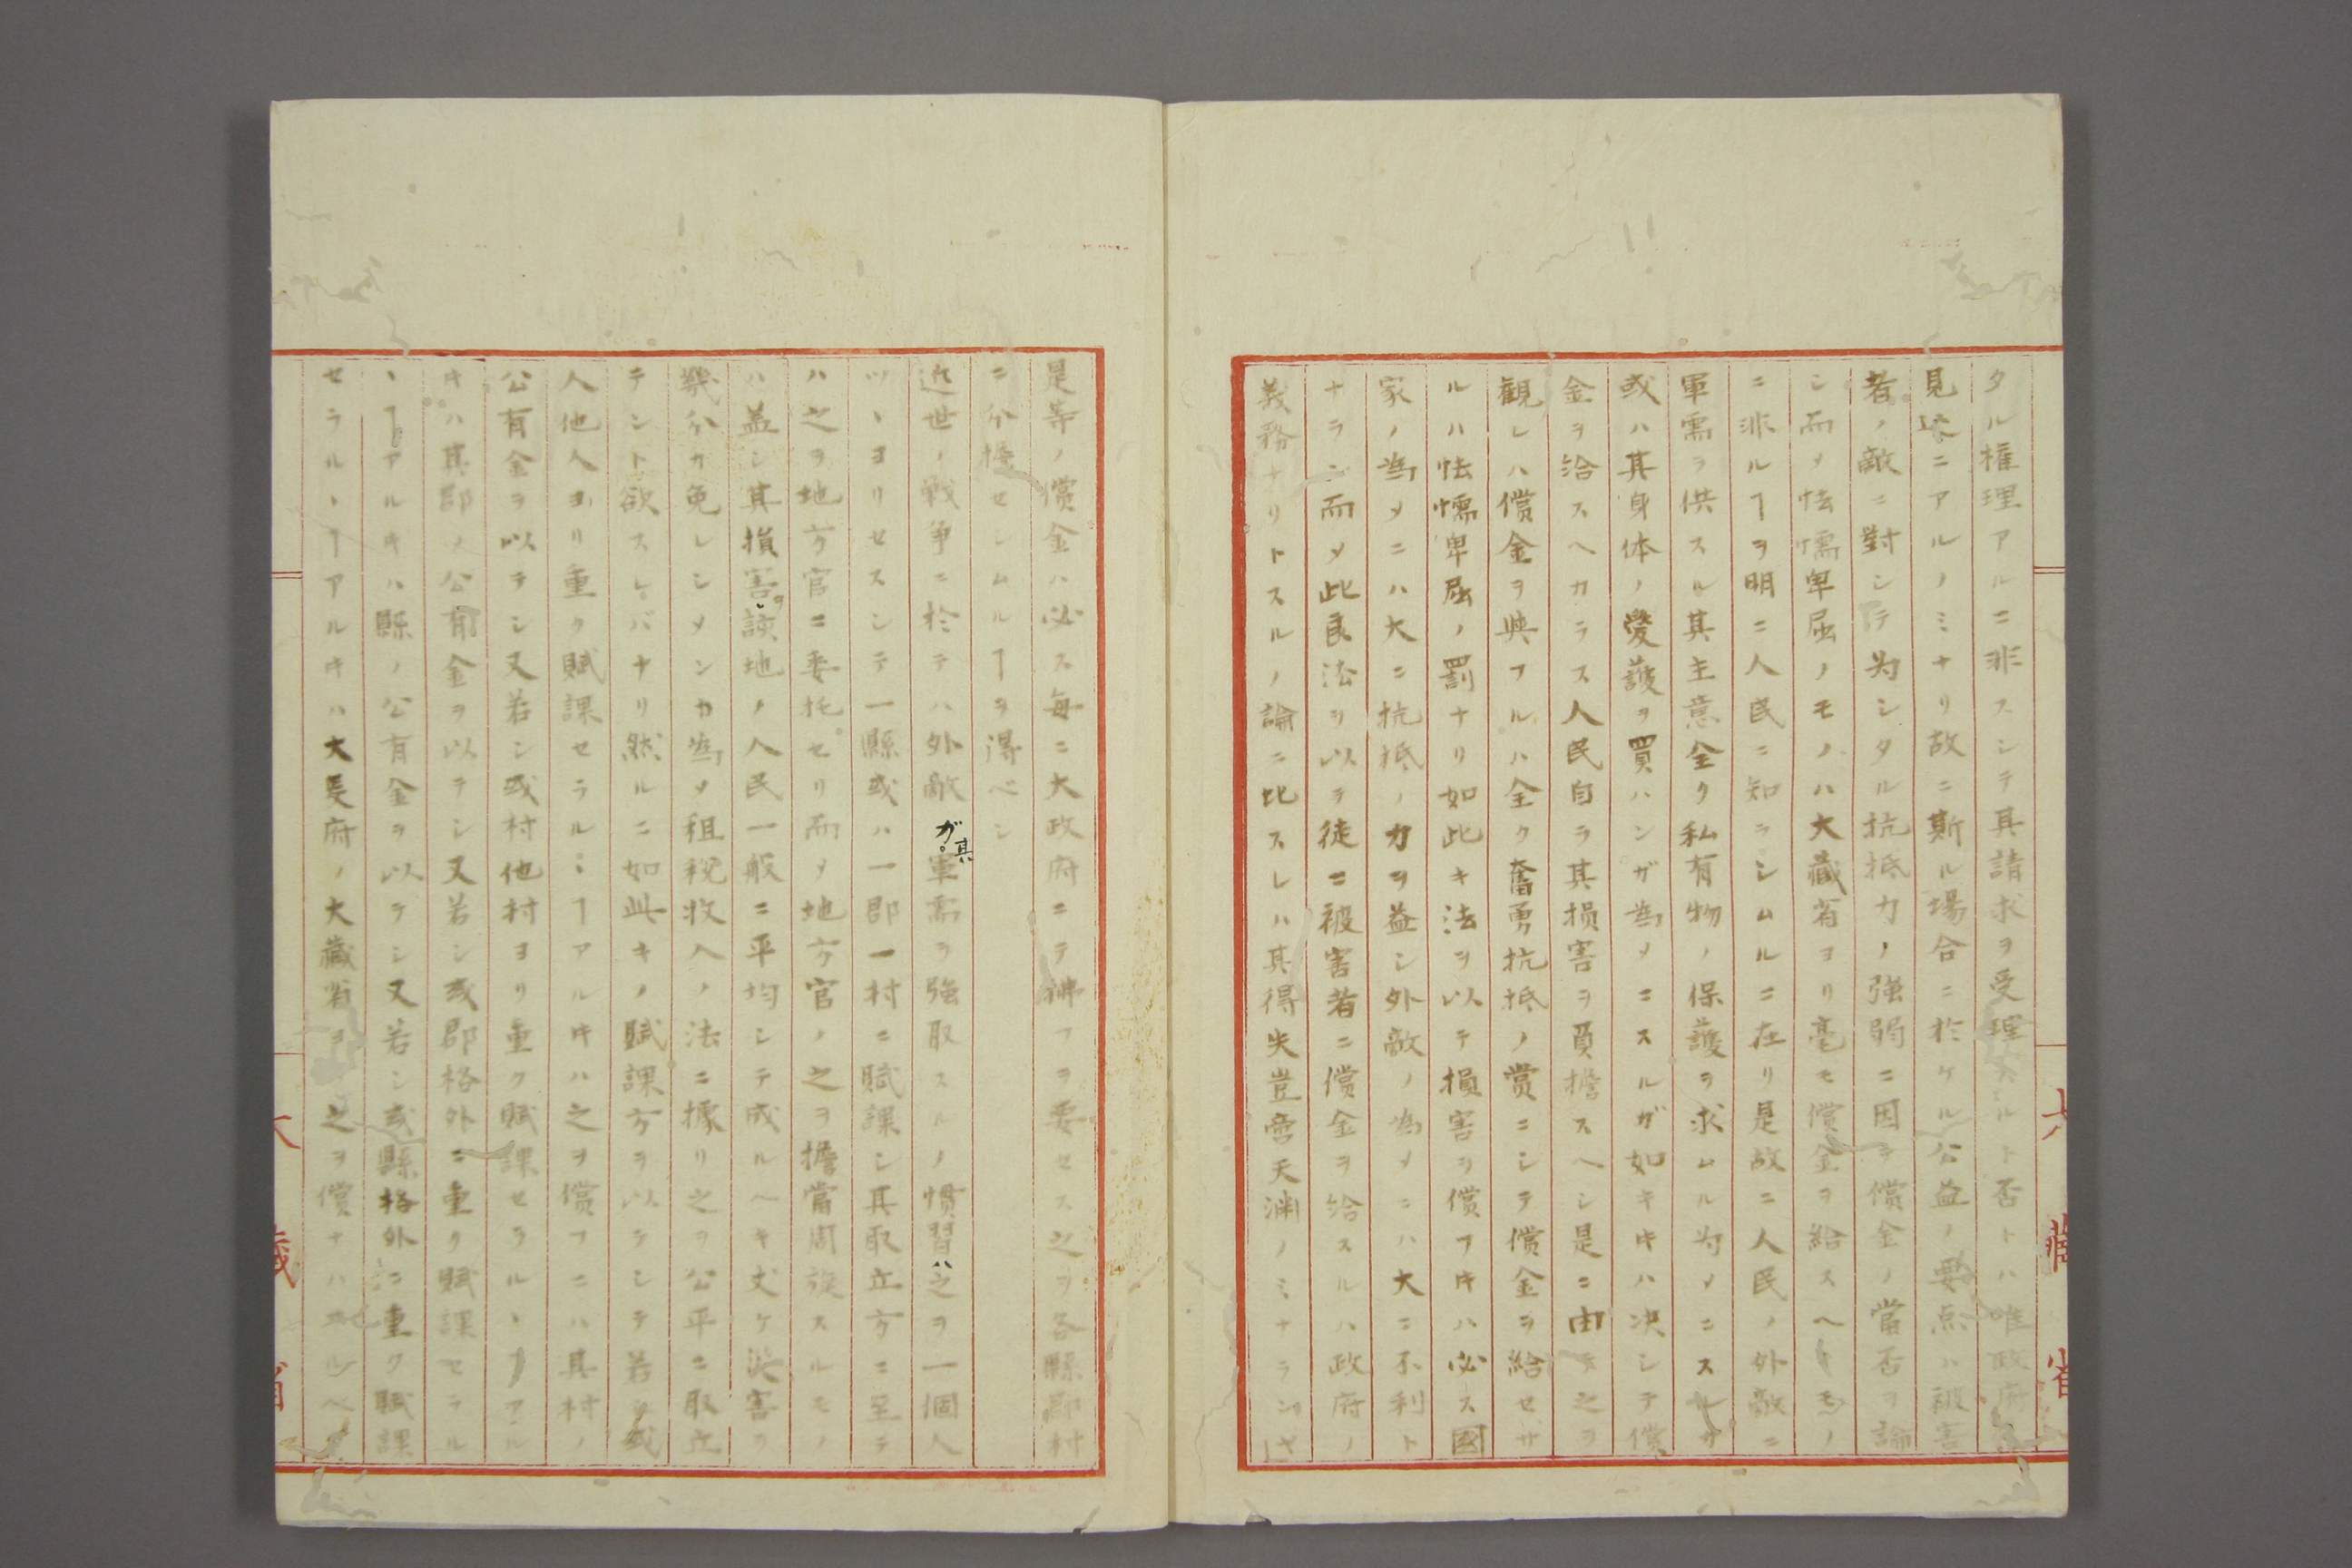 タル権理アルニ非スシテ其請求ヲ受理スルト否トハ唯政府
見込ニアルノミナリ故ニ斯ル場合ニ於ケル公益ノ要点ハ被害
者ノ敵ニ對シテ為シタル抗抵力ノ強弱ニ因テ償金ノ當否ヲ論
シ而メ怯懦卑屈ノモノハ大藏省ヨリ毫モ償金ヲ給スヘキモノ
ニ非ルヿヲ明ニ人民ニ知ラシムルニ在リ是故ニ人民ノ外敵ニ
軍需ヲ供スル其主意全ク私有物ノ保護ヲ求ムル為メニスルカ
或ハ其身体ノ愛護ヲ買ハンガ為メニスルガ如キキハ决シテ償
金ヲ給スヘカラス人民自ラ其損害ヲ負擔スヘシ是ニ由テ之ヲ
観レハ償金ヲ與フルハ全ク奮勇抗抵ノ賞ニシテ償金ヲ給セサ
ルハ怯懦卑屈ノ罰ナリ如此キ法ヲ以テ損害ヲ償フキハ必ス國
家ノ為メニハ大ニ抗抵ノ力ヲ益シ外敵ノ為メニハ大ニ不利ト
ナラン而メ此良法ヲ以テ徒ニ被害者ニ償金ヲ給スルハ政府ノ
義務ナリトスルノ論ニ比スレハ其得失豈啻天渊ノミナランヤ
大藏省
是等ノ償金ハ必ス毎ニ大政府ニテ拂フヲ要セス之ヲ各縣郡村
ニ分擔セシムルヿヲ得ベシ
近世ノ戦争ニ於テハ外敵ガ其軍需ヲ強取スルノ慣習ハ之ヲ一個人
ツヽヨリセスシテ一縣或ハ一郡一村ニ賦課シ其取立方ニ至テ
ハ之ヲ地方官ニ委托セリ而メ地方官ノ之ヲ擔當周旋スルモノ
ハ盖シ其損害ヲ該地ノ人民一般ニ平均シテ成ルヘキ丈ケ災害ヲ
幾分カ免レシメンカ為メ租税收入ノ法ニ據リ之ヲ公平ニ取立
テント欲スレバナリ然ルニ如此キノ賦課方ヲ以テシテ若シ或
人他人ヨリ重ク賦課セラルヽヿアルキハ之ヲ償フニハ其村ノ
公有金ヲ以テシ又若シ或村他村ヨリ重ク賦課セラルヽヿアル
キハ其郡ノ公有金ヲ以テシ又若シ或郡格外ニ重ク賦課セラル
ヽヿアルキハ縣ノ公有金ヲ以テシ又若シ或縣格外ニ重ク賦課
セラルヽヿアルキハ大政府ノ大藏省ヨリ之ヲ償ナハサルベ
大藏省